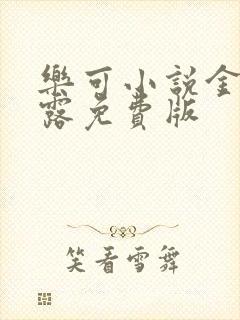 樂可小說金
露免費版
笑看雪舞